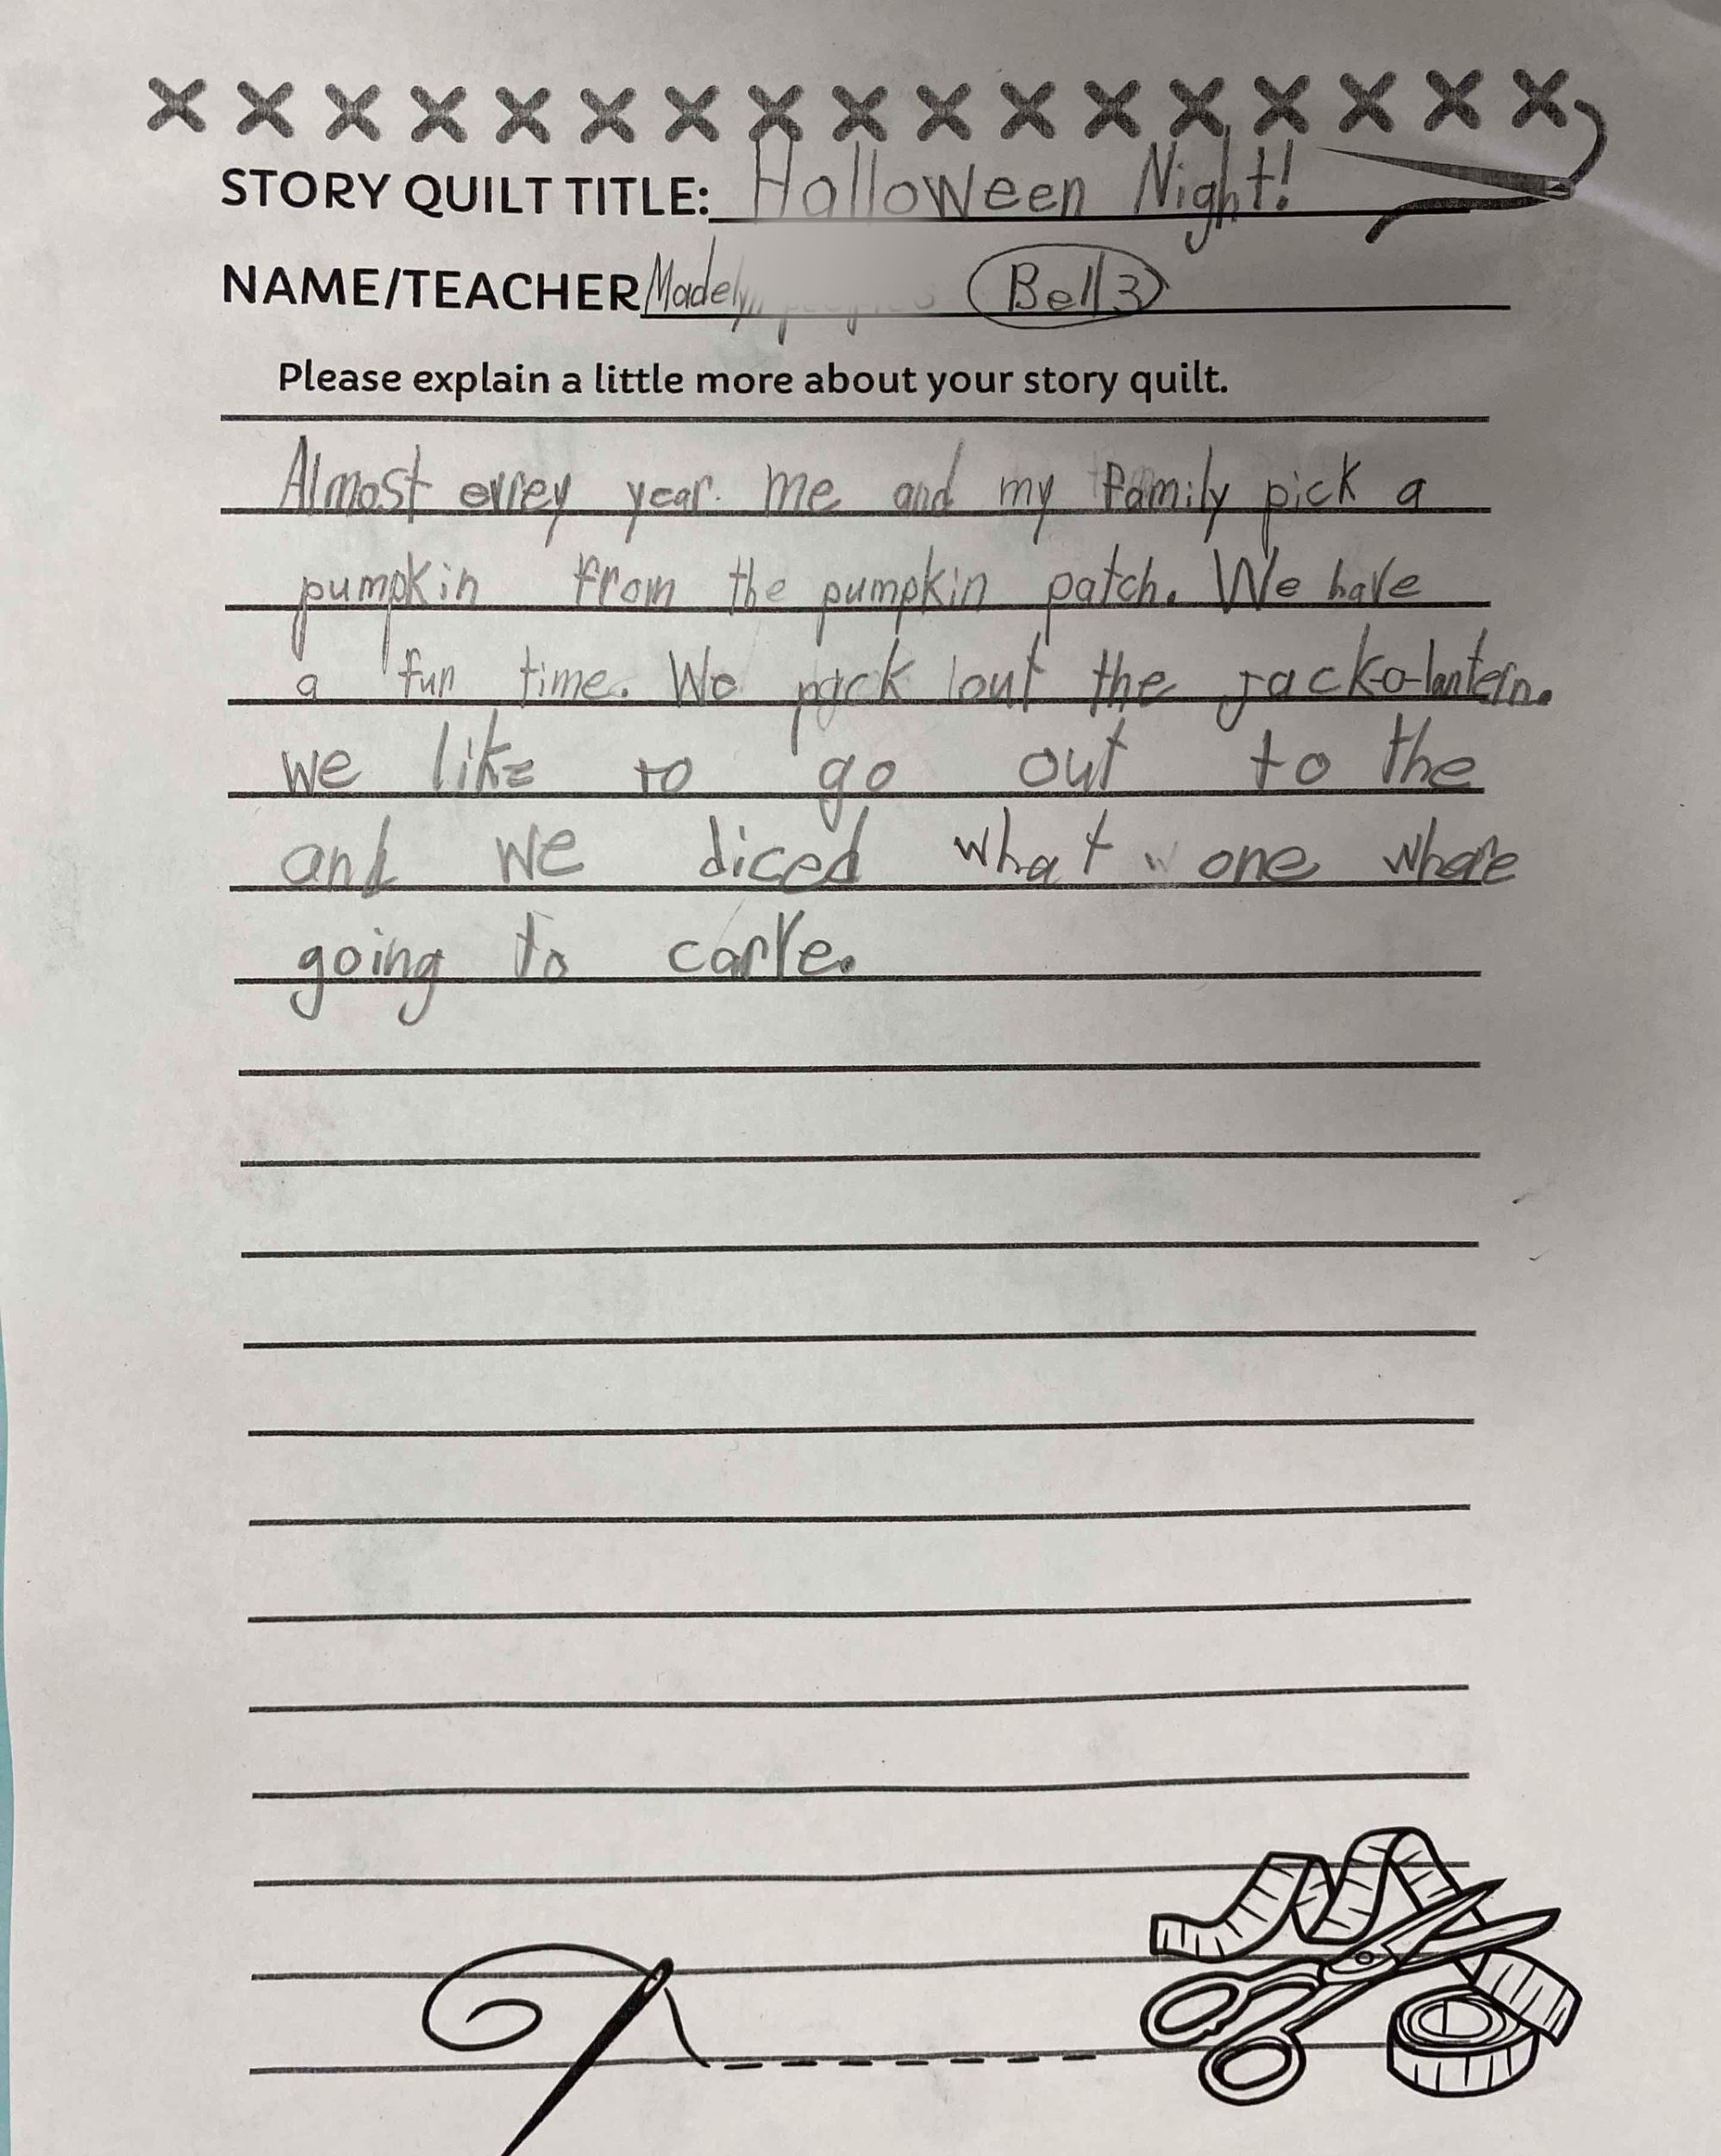 STORY QUILT TITLE: Halloween Night!
NAME/TEACHER Madelyn Bell 3
Please explain a little more about your story quilt.
Almost evrey year me and my family pick a
pumpkin from the pumpkin patch. We have
a fun time. We pick out the jack-o-lantern.
we like to go out to the
and we diced what one whare
going to carve.